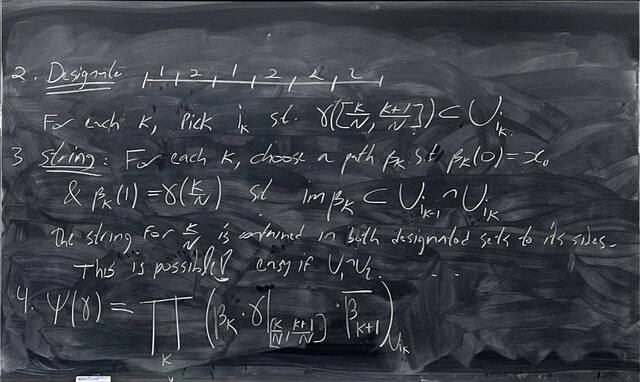 2. Designate 1 2 1 2 2 2
For each k, pick i_k st. γ([k/N, k+1/N]) ⊂ U_{i_k}.
3 string: For each k, choose a path β_k st β_k(0) = x_0
& β_k(1) = γ(k/N) st im β_k ⊂ U_{i_{k-1}} ∩ U_{i_k}
The string for k/N is contained in both designated sets to its sides.
This is possible!! easy if U_1 ∩ U_2. ...
4. Ψ(γ) = ∏_k (β_k · γ|_{[k/N, k+1/N]} · β̅_{k+1})_{U_{i_k}}